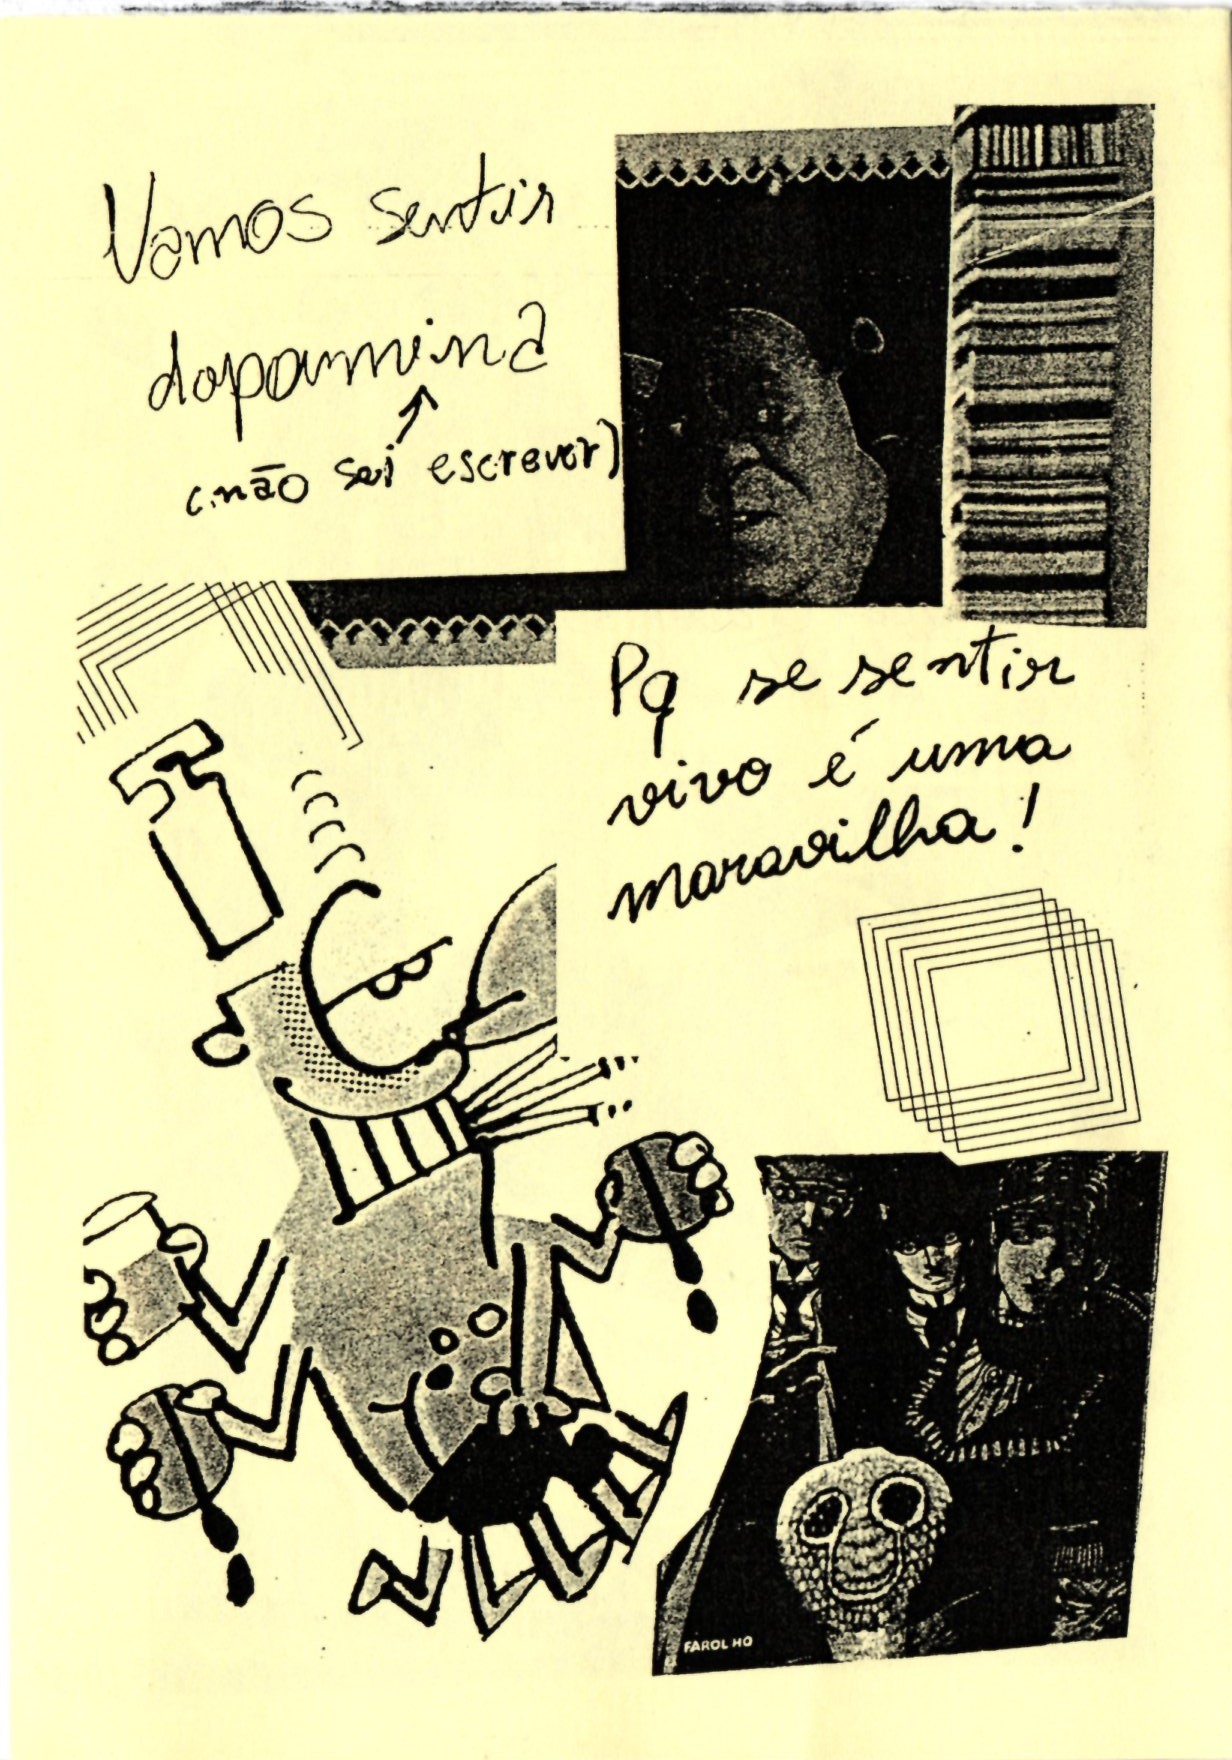 Vamos sentir
dopamina
(não sei escrever)
Pq se sentir
vivo é uma
maravilha!
FAROLHO